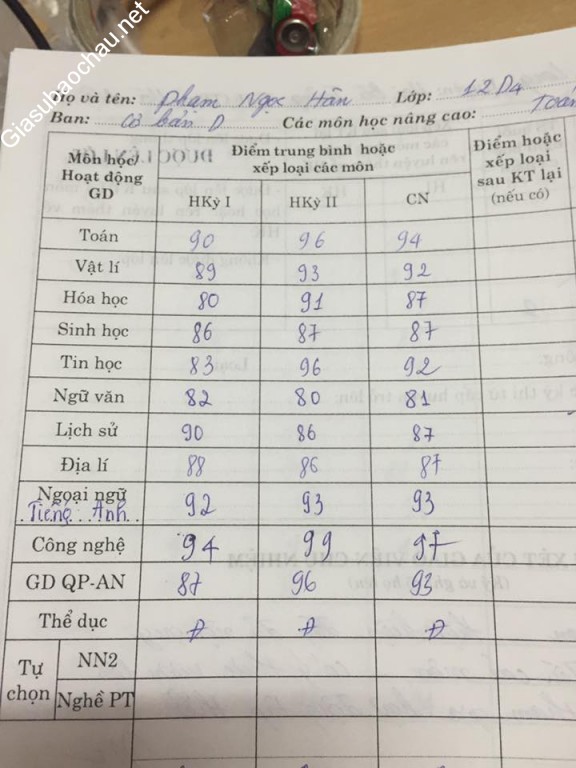 Giasubaochau.net
Họ và tên: Phạm Ngọc Hân Lớp: 12D4
Ban: Cơ bản D Các môn học nâng cao: Toán
Môn học/ Hoạt động GD Điểm trung bình hoặc xếp loại các môn Điểm hoặc xếp loại sau KT lại (nếu có)
HKỳ I HKỳ II CN
Toán 90 96 94
Vật lí 89 93 92
Hóa học 80 91 87
Sinh học 86 87 87
Tin học 83 96 92
Ngữ văn 82 80 81
Lịch sử 90 86 87
Địa lí 88 86 87
Ngoại ngữ
Tiếng Anh 92 93 93
Công nghệ 94 99 97
GD QP-AN 87 96 93
Thể dục Đ Đ Đ
Tự chọn NN2
Nghề PT